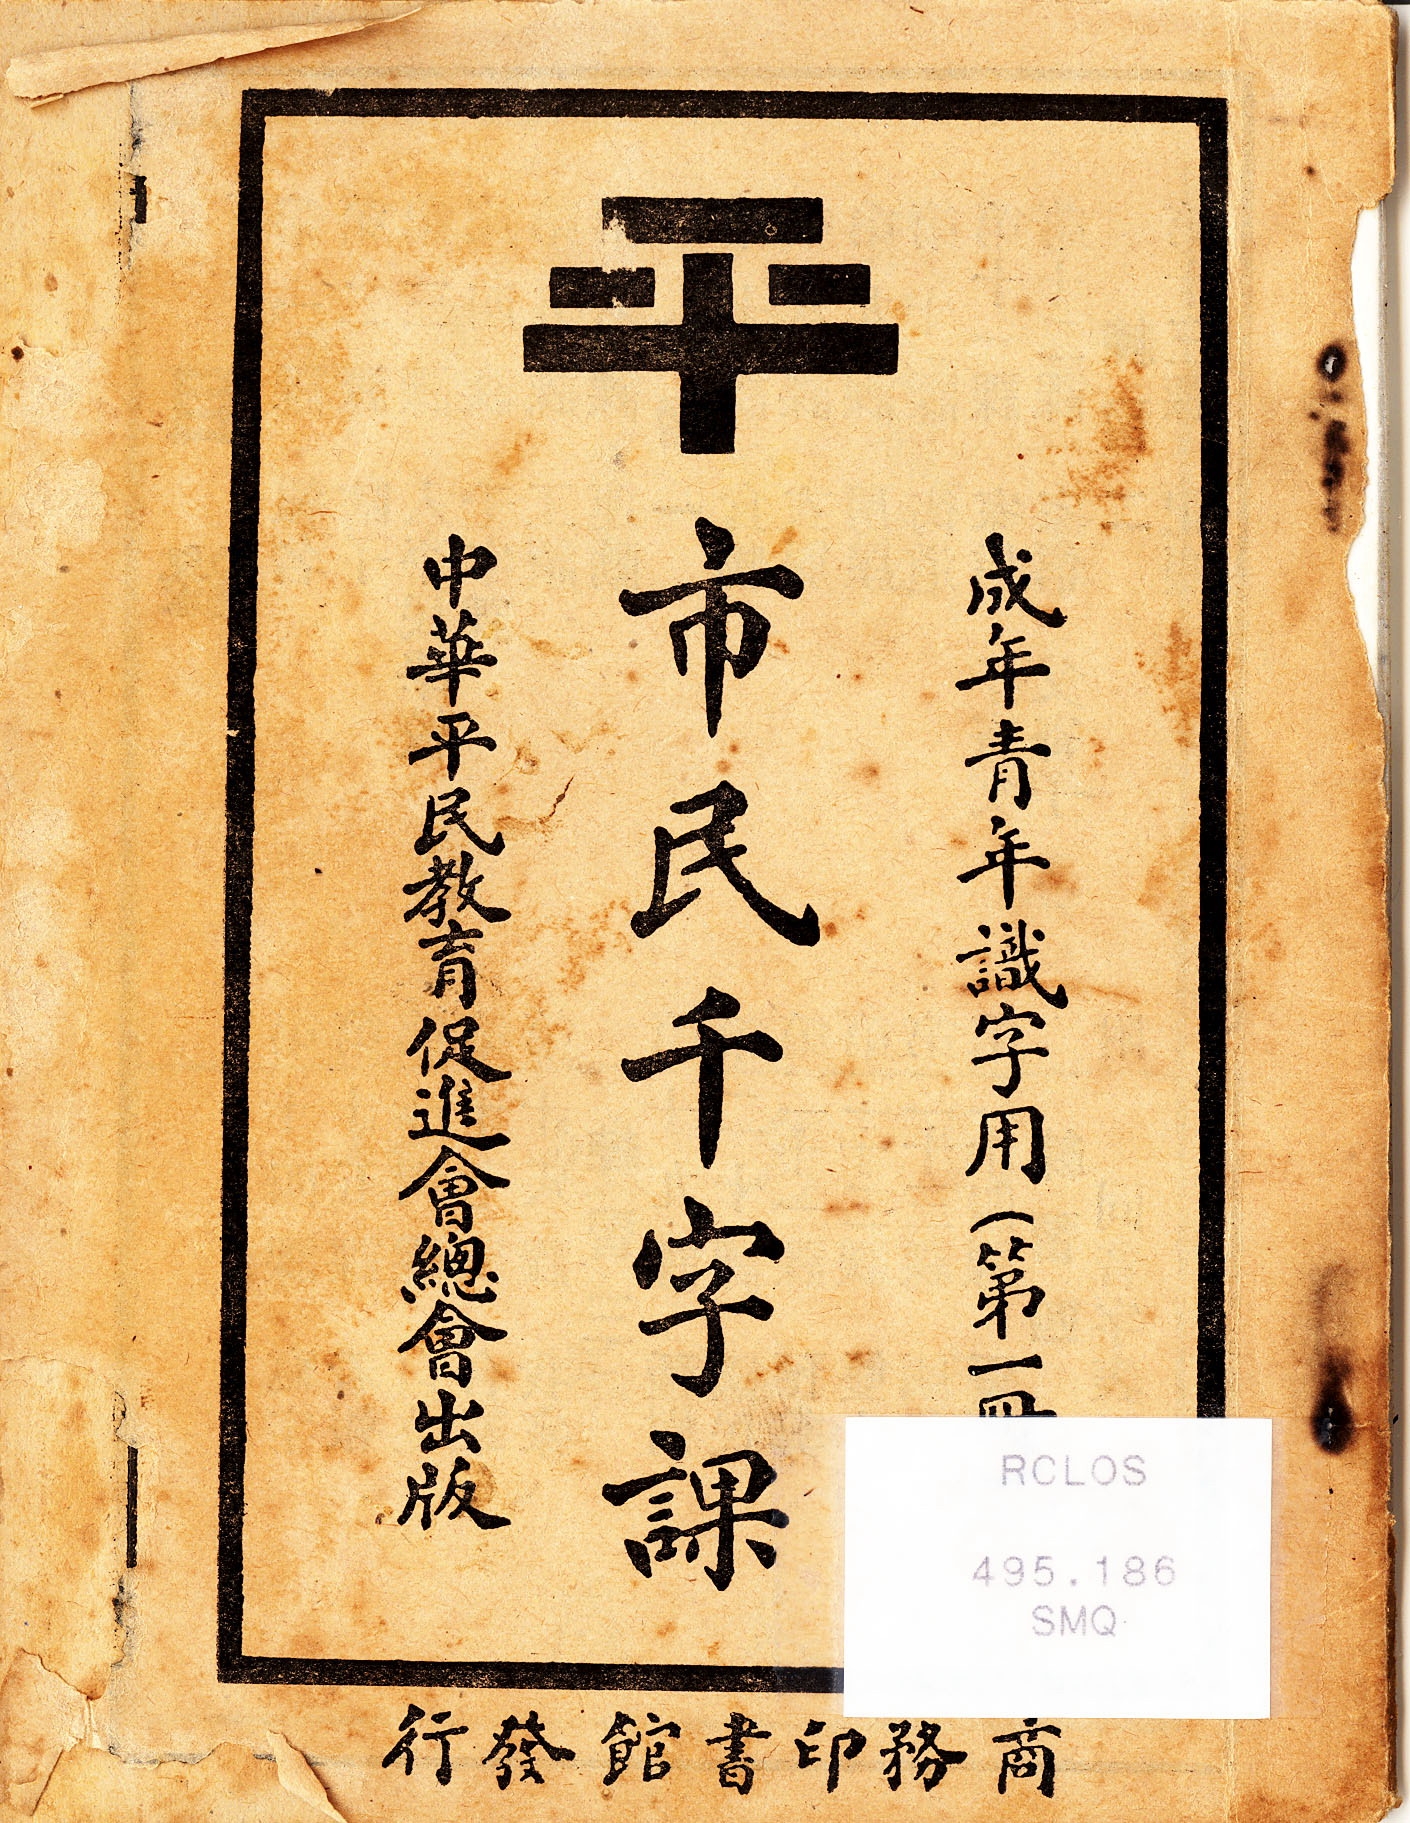 平
成年青年識字用(第一冊
市民千字課
中華平民教育促進會總會出版
商務印書館發行
RCLOS
495.186
SMQ